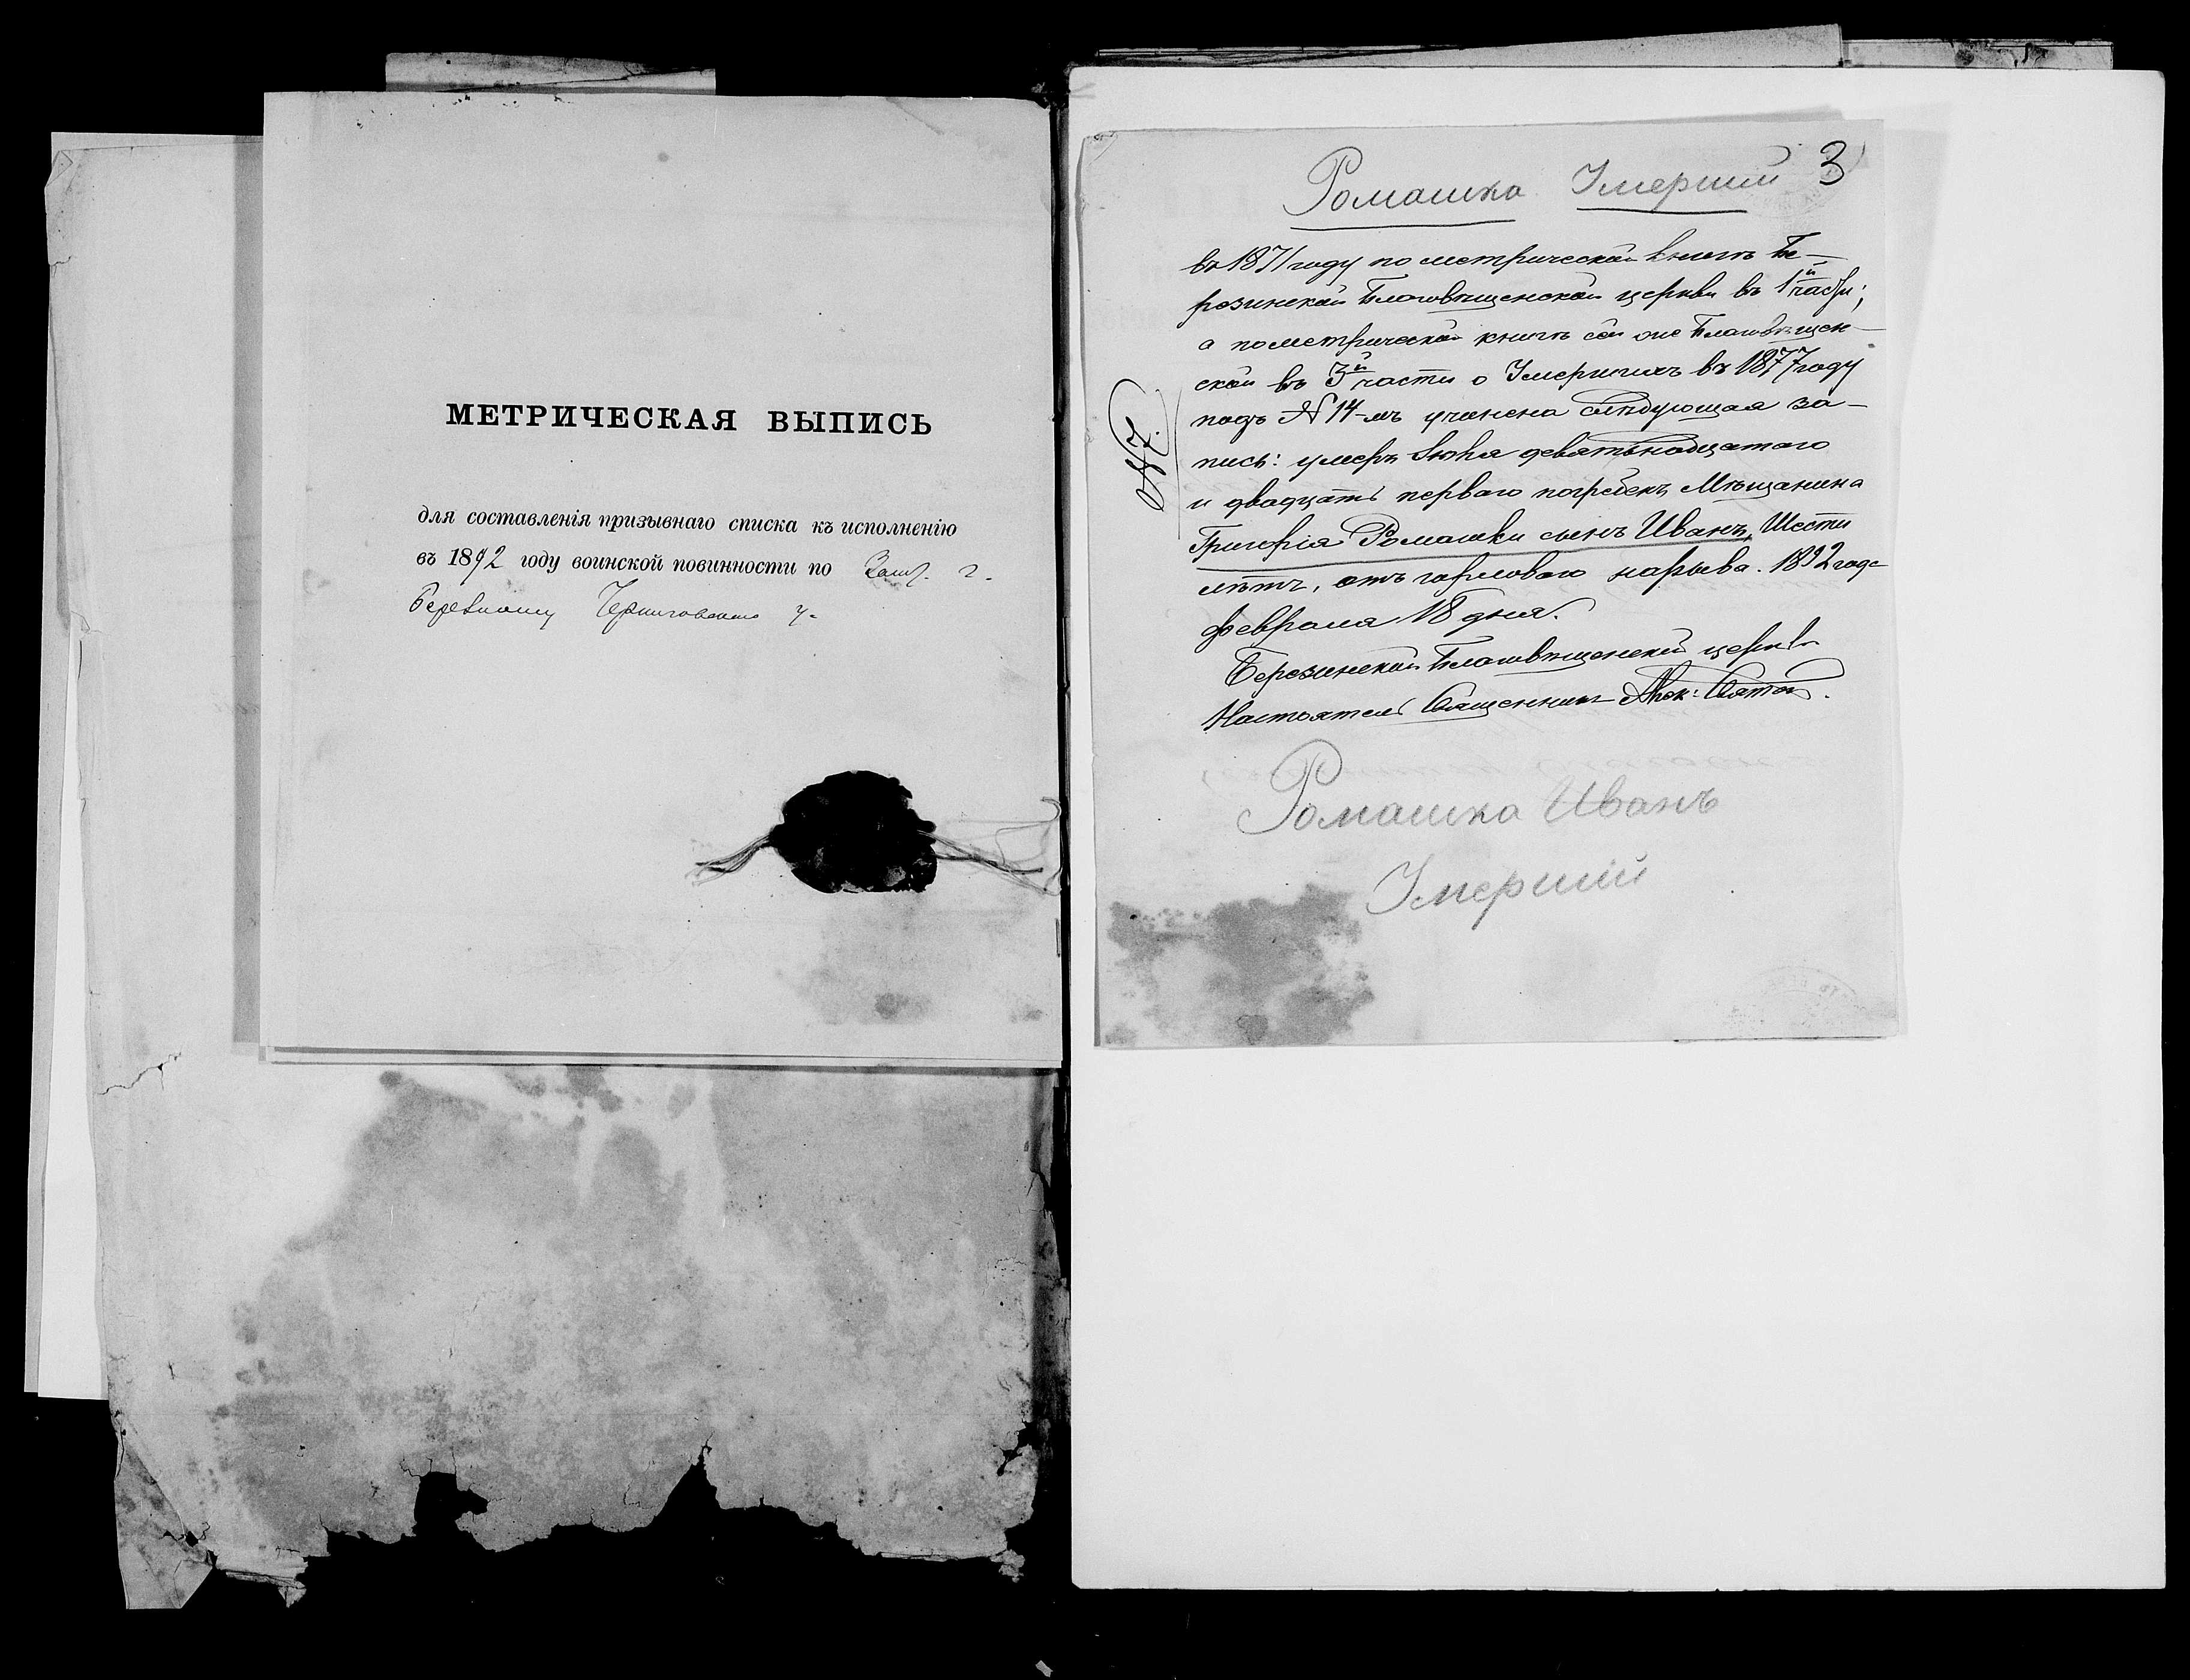 МЕТРИЧЕСКАЯ ВЫПИСЬ
для составленія призывнаго списка къ исполненію
въ 1892 году воинской повинности по г.
Березному Черниговскаго у.
Ромашка Умершій 3
въ 1871 году по метрической книгѣ Бе-
резинской Благовѣщенской церкви въ 1й части;
а по метрической книгѣ сей же Благовѣщен-
ской въ 3й части о Умершихъ въ 1877 году
подъ № 14-мъ учинена слѣдующая за-
пись: умеръ девятьнадцатаго
и двадцать перваго погребенъ Мѣщанина
Григорія Ромашки сынъ Иванъ, Шести
лѣтъ, отъ горловаго нарыва. 1892 года
февраля 18 дня.
Березинской Благовѣщенской церкви
Настоятель Священникъ
№ 7.
Ромашка Иванъ
Умершій